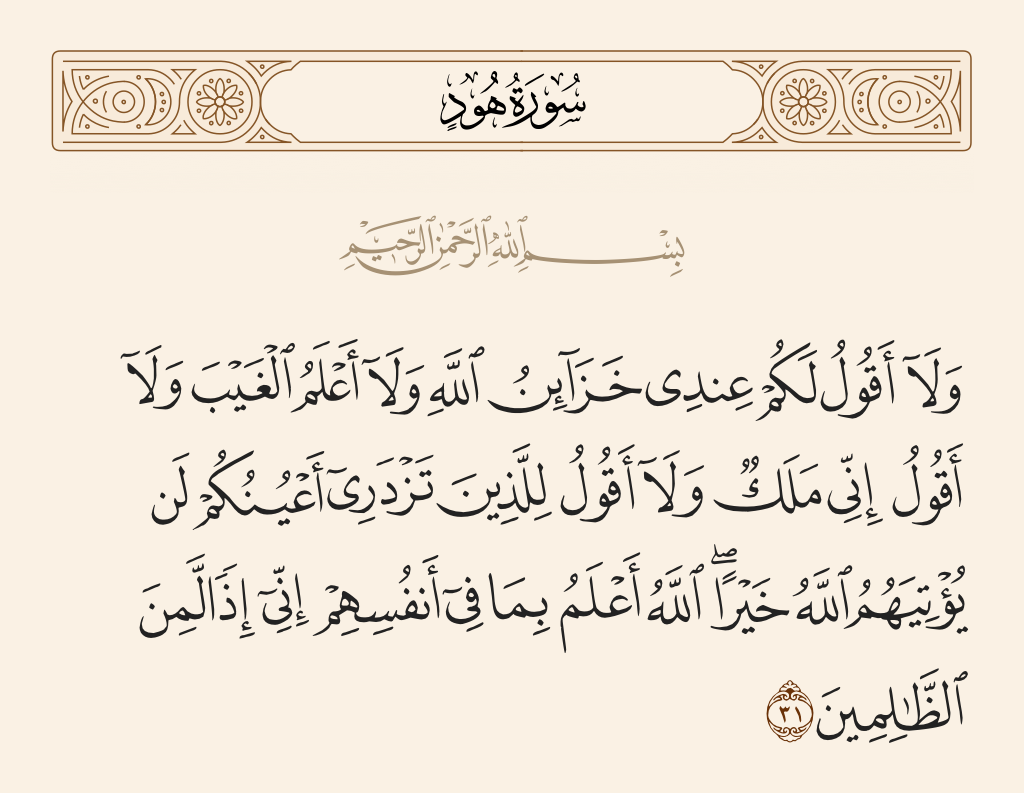 سُورَةُ هُودٍ
بِسْمِ ٱللَّهِ ٱلرَّحْمَٰنِ ٱلرَّحِيمِ
وَلَآ أَقُولُ لَكُمْ عِندِى خَزَآئِنُ ٱللَّهِ وَلَآ أَعْلَمُ ٱلْغَيْبَ وَلَآ
أَقُولُ إِنِّى مَلَكٌ وَلَآ أَقُولُ لِلَّذِينَ تَزْدَرِىٓ أَعْيُنُكُمْ لَن
يُؤْتِيَهُمُ ٱللَّهُ خَيْرًا ۖ ٱللَّهُ أَعْلَمُ بِمَا فِىٓ أَنفُسِهِمْ إِنِّىٓ إِذًا لَّمِنَ
ٱلظَّٰلِمِينَ ٣١